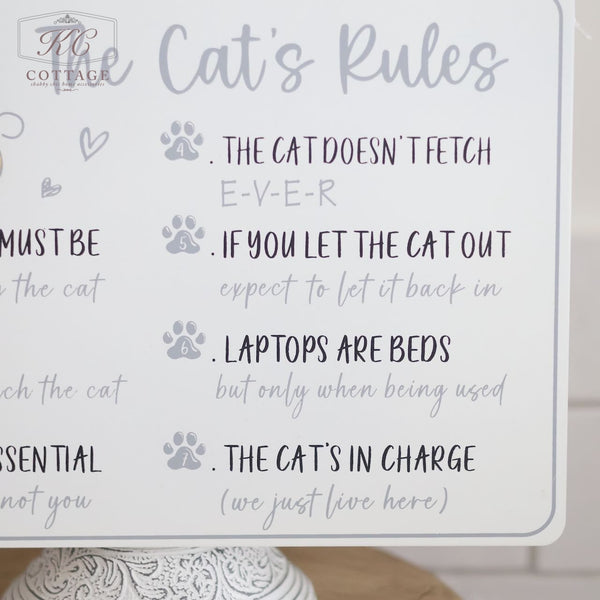 KC
COTTAGE
shabby chic home accessories
The Cat's Rules
MUST BE
the cat
the cat
SSENTIAL
not you
4. THE CAT DOESN'T FETCH
E-V-E-R
5. IF YOU LET THE CAT OUT
expect to let it back in
6. LAPTOPS ARE BEDS
but only when being used
7. THE CAT'S IN CHARGE
(we just live here)